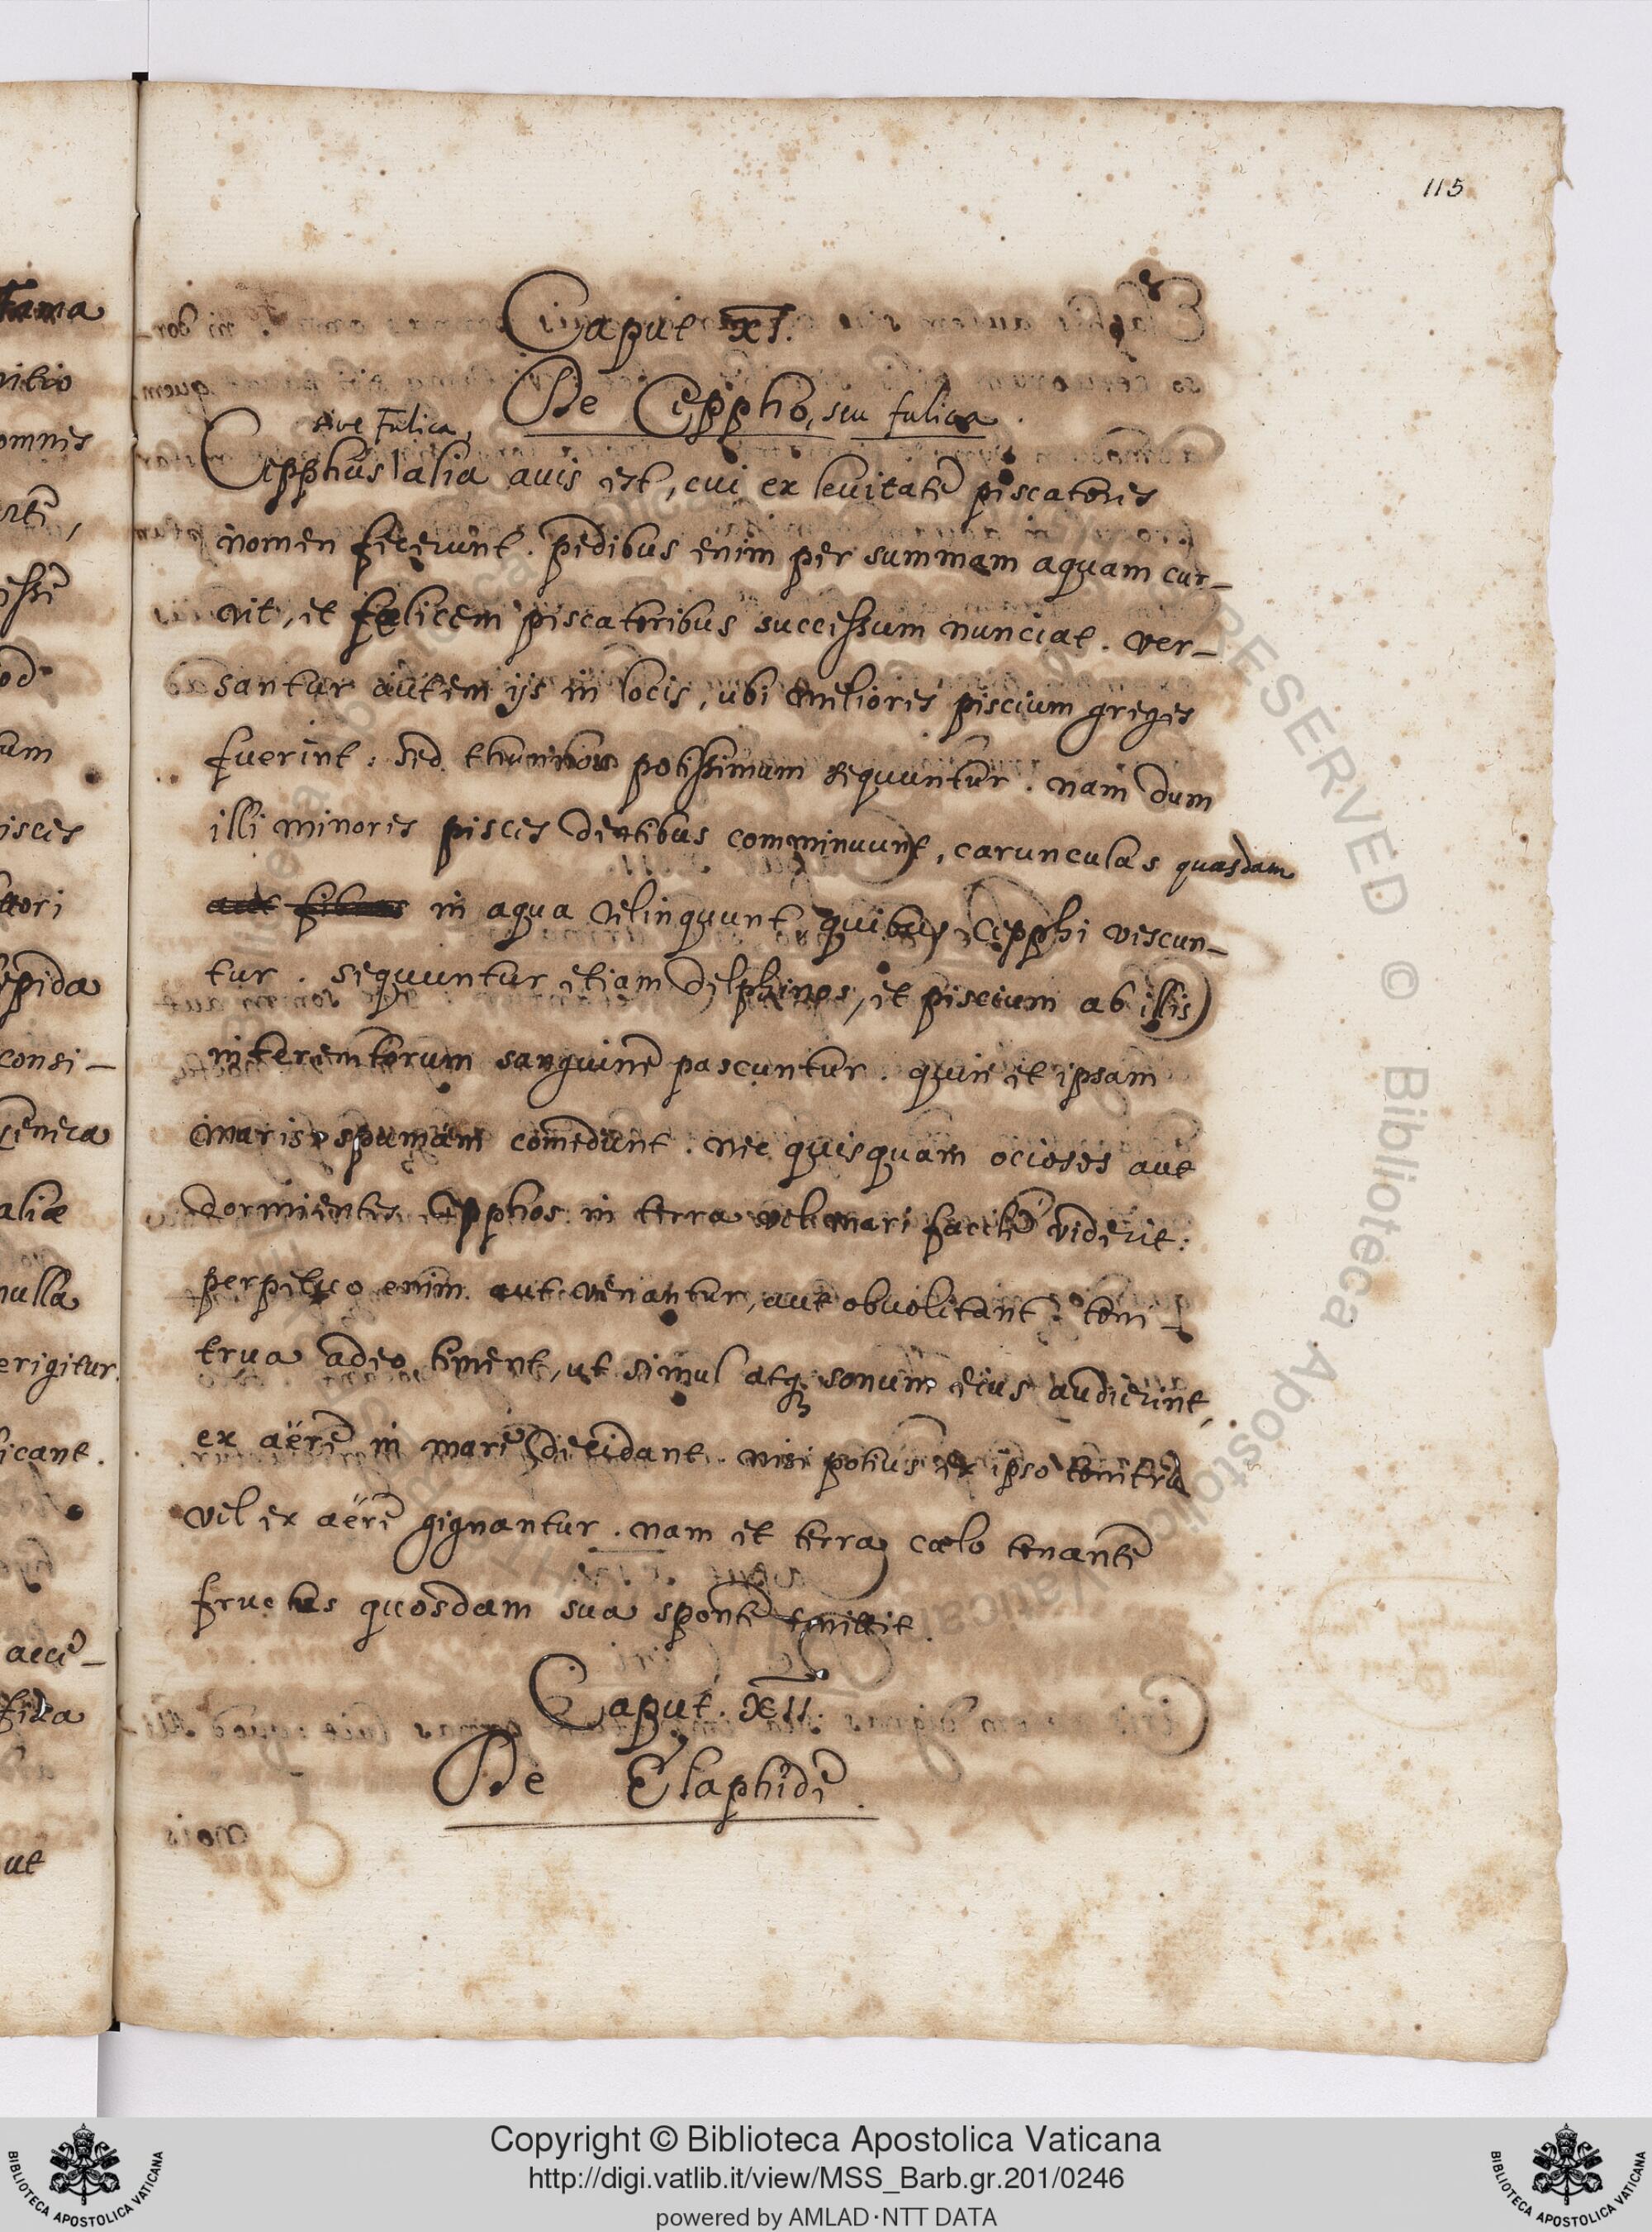 115
Caput XI.
De Ceppho, seu fulica.
sive Fulica,
Cepphus alia avis est, cui ex levitate piscatores
nomen fecerunt. pedibus enim per summam aquam cur-
rit, et felicem piscatoribus successum nunciat. ver-
santur autem ijs in locis, ubi meliores piscium greges
fuerint: sed potissimum sequuntur. nam dum
illi minores pisces dentibus comminuunt, carunculas quasdam
in aqua relinquunt, quibus Cepphi vescun-
tur. sequuntur etiam delphinos, et piscium ab illis
interemtorum sanguine pascuntur. quin et ipsam
maris spumam comedunt. nec quisquam ociosos aut
dormientes Cepphos in terra vel mari facile viderit:
perpetuo enim aut venantur, aut obvolitant: toni-
trua adeo timent, ut simul atq; sonum eius audierint,
ex aëre in mare decidant. nisi potius ex ipso tonitru
vel ex aëre gignantur. nam et terra cælo tonante
fructus quosdam sua sponte emittit.
Caput. XII.
De Elaphide.
Fama
omnes
isces
consi-
aliæ
nulla
erigitur.
ut
RESERVED © Biblioteca Apostolica Vaticana
Copyright © Biblioteca Apostolica Vaticana
http://digi.vatlib.it/view/MSS_Barb.gr.201/0246
powered by AMLAD·NTT DATA
BIBLIOTECA APOSTOLICA VATICANA
BIBLIOTECA APOSTOLICA VATICANA